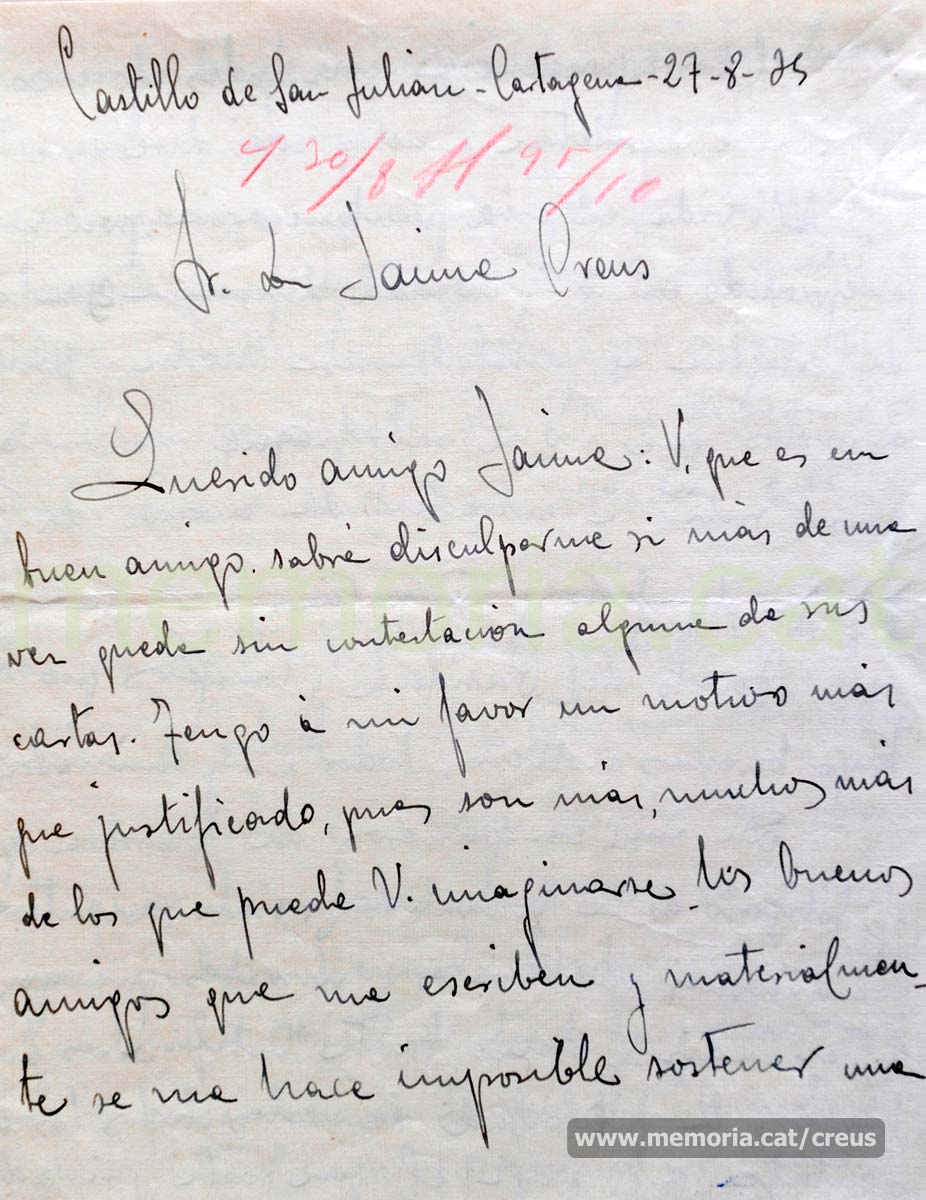 Castillo de San Julian - Cartagena - 27-8-35
30/8 95/10
Sr. Dn Jaime Creus
Querido amigo Jaime: V. que es un
buen amigo. sabrá disculparme si más de una
vez queda sin contestación alguna de sus
cartas. Tengo à mi favor un motivo más
que justificado, pues son más, muchos más
de los que puede V. imaginarse los buenos
amigos que me escriben y materialmen-
te se me hace imposible sostener una
memoria.cat
www.memoria.cat/creus